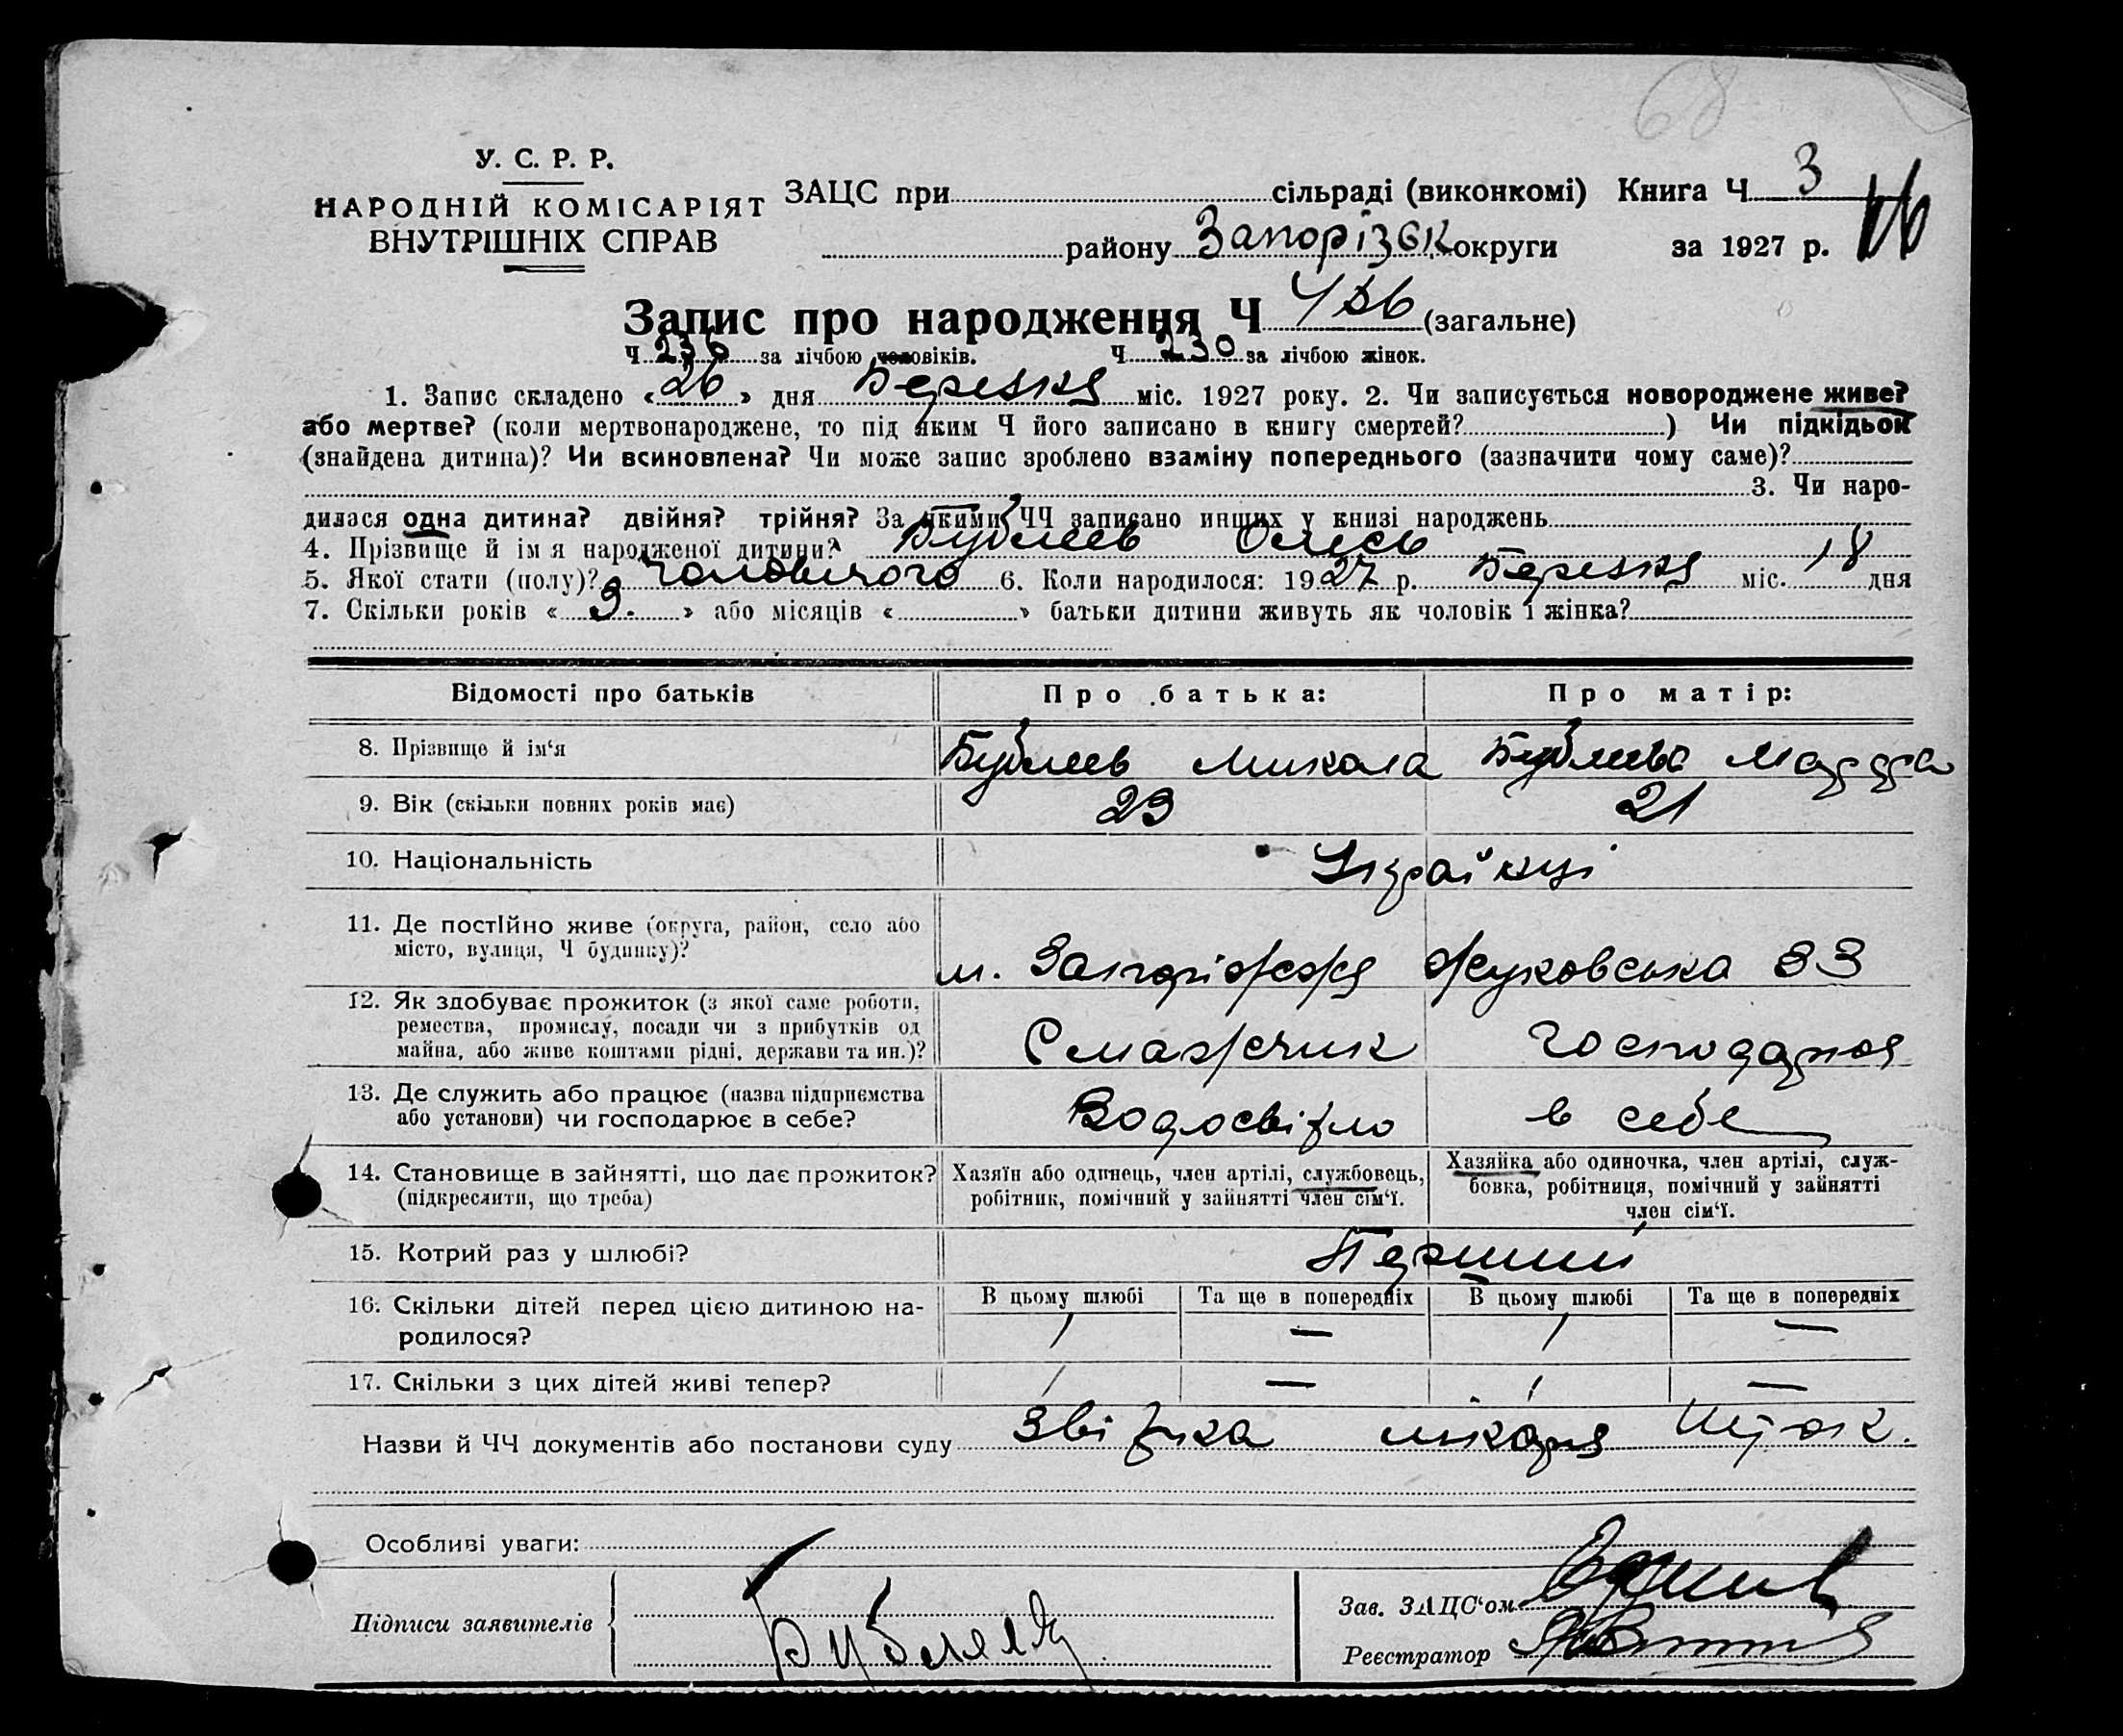 68
У. С. Р. Р.
НАРОДНІЙ КОМІСАРІЯТ
ВНУТРІШНІХ СПРАВ
ЗАЦС при сільраді (виконкомі) Книга Ч 3
району Запорізьк округи за 1927 р.
Запис про народження Ч (загальне)
Ч 236 за лічбою чоловіків. Ч 230 за лічбою жінок.
1. Запис складено «26» дня Березня міс. 1927 року. 2. Чи записується новороджене живе?
або мертве? (коли мертвонароджене, то під яким Ч його записано в книгу смертей? ) Чи підкідьок
(знайдена дитина)? Чи всиновлена? Чи може запис зроблено взаміну попереднього (зазначити чому саме)?
3. Чи наро-
дилася одна дитина? двійня? трійня? За якими ЧЧ записано инших у книзі народжень
4. Прізвище й ім я народженої дитини? Бублеев Олесь
5. Якої стати (полу)? чоловічого 6. Коли народилося: 1927 р. Березня міс. 18 дня
7. Скільки років « 3. » або місяців « » батьки дитини живуть як чоловік і жінка?
Відомості про батьків Про батька: Про матір:
8. Прізвище й ім‘я Бублеев Микола Бублеева
9. Вік (скільки повних років має) 23 21
10. Національність Українці
11. Де постійно живе (округа, район, село або
місто, вулиця, Ч будинку)? м. Запоріжжя Жуковська 83
12. Як здобуває прожиток (з якої саме роботи,
ремества, промислу, посади чи з прибутків од
майна, або живе коштами рідні, держави та ин.)? Смажчик господарює
13. Де служить або працює (назва підприємства
або установи) чи господарює в себе? Водосвітло в себе
14. Становище в зайнятті, що дає прожиток?
(підкреслити, що треба)
Хазяїн або одинець, член артілі, службовець,
робітник, помічний у зайнятті член сім‘ї.
Хазяйка або одиночка, член артілі, служ-
бовка, робітниця, помічний у зайнятті
член сім‘ї.
15. Котрий раз у шлюбі? Перший
16. Скільки дітей перед цією дитиною на-
родилося?
В цьому шлюбі Та ще в попередніх В цьому шлюбі Та ще в попередніх
1 — 1 —
17. Скільки з цих дітей живі тепер? 1 — 1 —
Назви й ЧЧ документів або постанови суду Звістка лікаря
Особливі уваги:
Підписи заявителів
Зав. ЗАЦС‘ом
Реєстратор